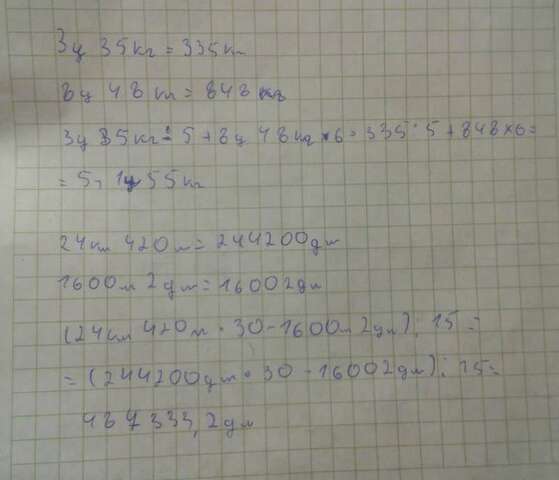 3ц 35кг = 335кг
8ц 48кг = 848кг
3ц 35кг : 5 + 8ц 48кг × 6 = 335 : 5 + 848 × 6 =
= 5т 1ц 55кг
24км 420м = 244200дм
1600м 2дм = 16002дм
(24км 420м • 30 - 1600м 2дм) : 15 =
= (244200дм • 30 - 16002дм) : 15 =
487333,2дм